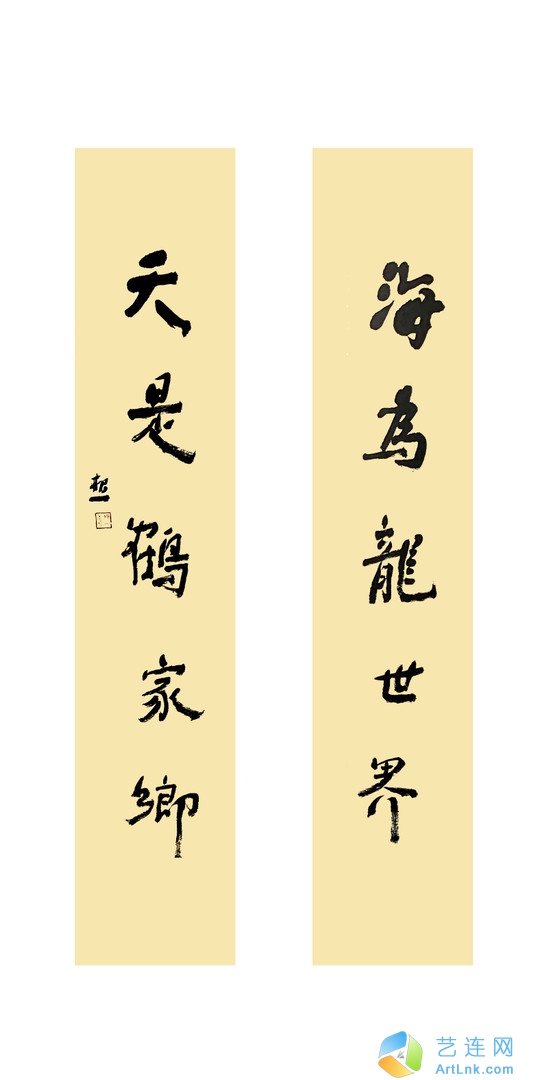 海為龍世界
天是鶴家鄉
艺连网
ArtLnk.com